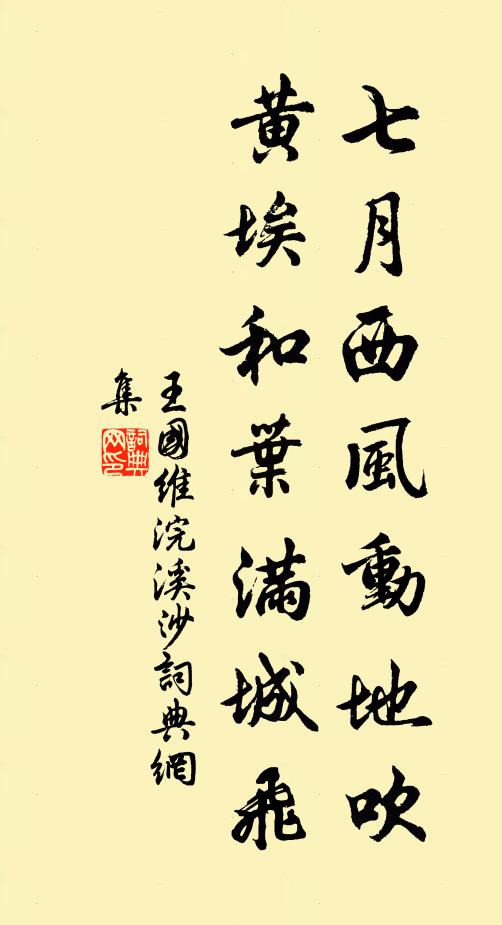 七月西風動地吹
黃埃和葉滿城飛
王國維浣溪沙詞典網
集
詞典網印